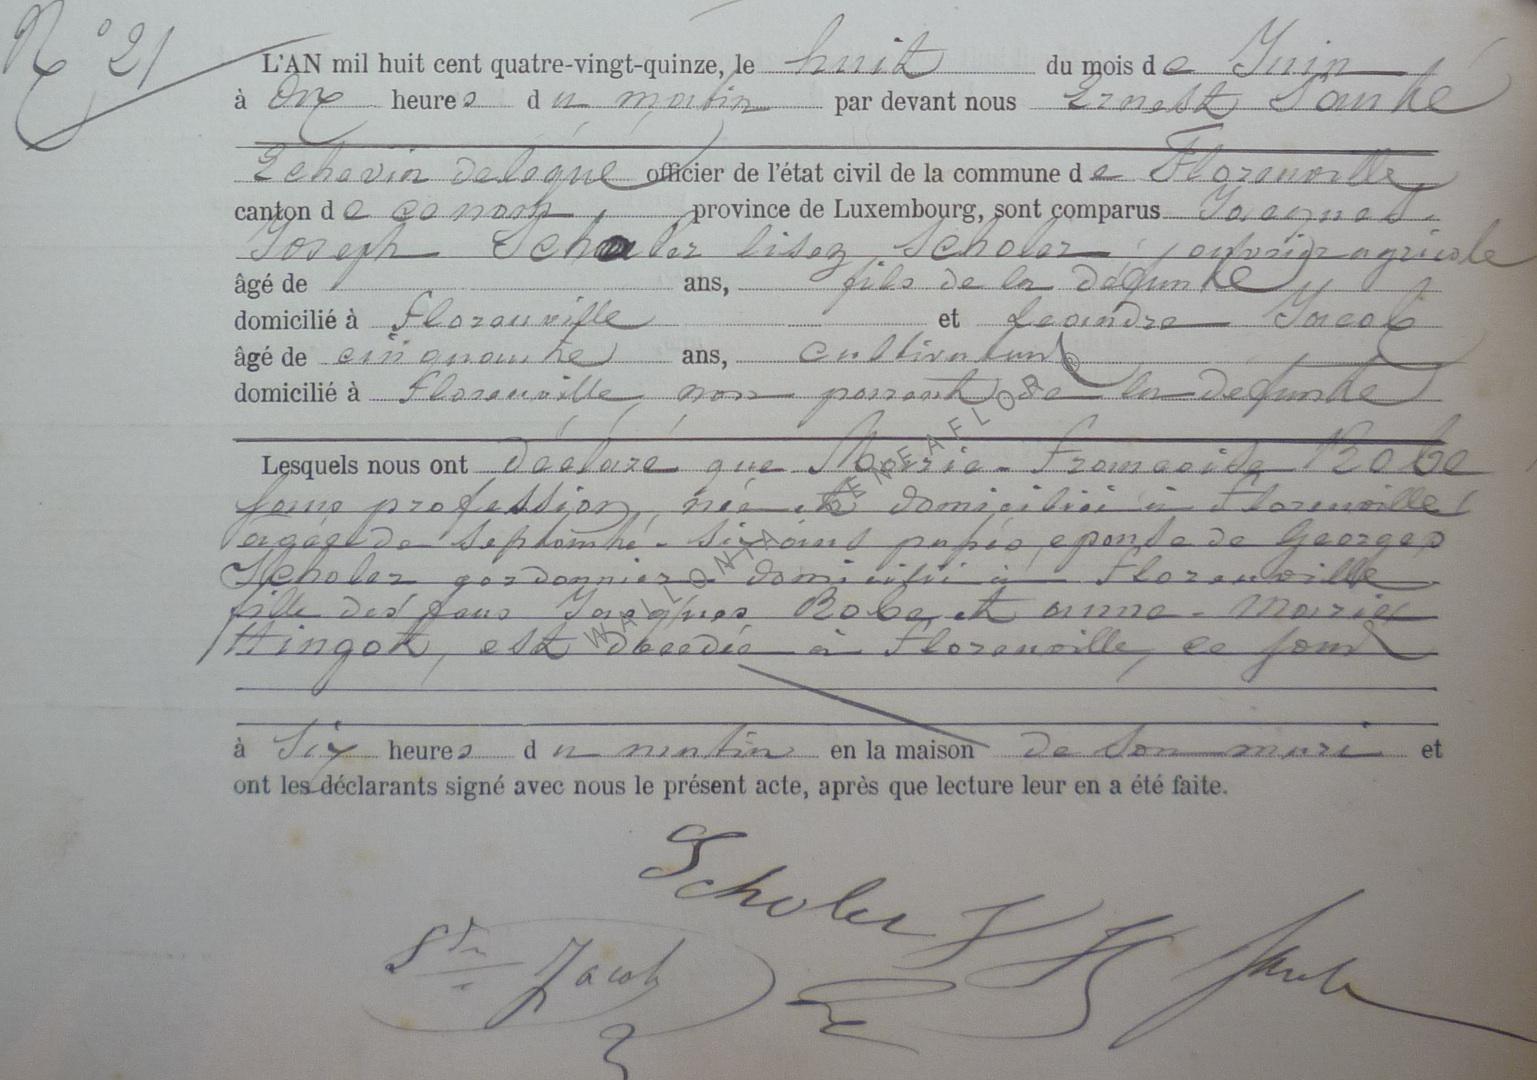 N° 21
L'AN mil huit cent quatre-vingt-quinze, le huit du mois de Juin
à onze heures du matin par devant nous Ernest
Echevin délégué officier de l'état civil de la commune de Florenville
canton de canton, province de Luxembourg, sont comparus Jacques
Joseph Schaler lisez Scholer, ouvrier agricole
âgé de ans, fils de la défunte
domicilié à Florenville et Léandre Jacob
âgé de cinquante ans, cultivateur
domicilié à Florenville, non parent de la défunte
Lesquels nous ont déclaré que Marie-Françoise Robe
sans profession, née et domiciliée à Florenville
agée de septante-six ans passés, épouse de Georges
Scholer cordonnier domicilié à Florenville
fille des feus Jacques Robe et anne-Marie
Hingot, est décedée à Florenville, ce jour
à six heures du matin en la maison de son mari et
ont les déclarants signé avec nous le présent acte, après que lecture leur en a été faite.
Scholer J
Jacob
WALLONIA GENEAFLOR ®